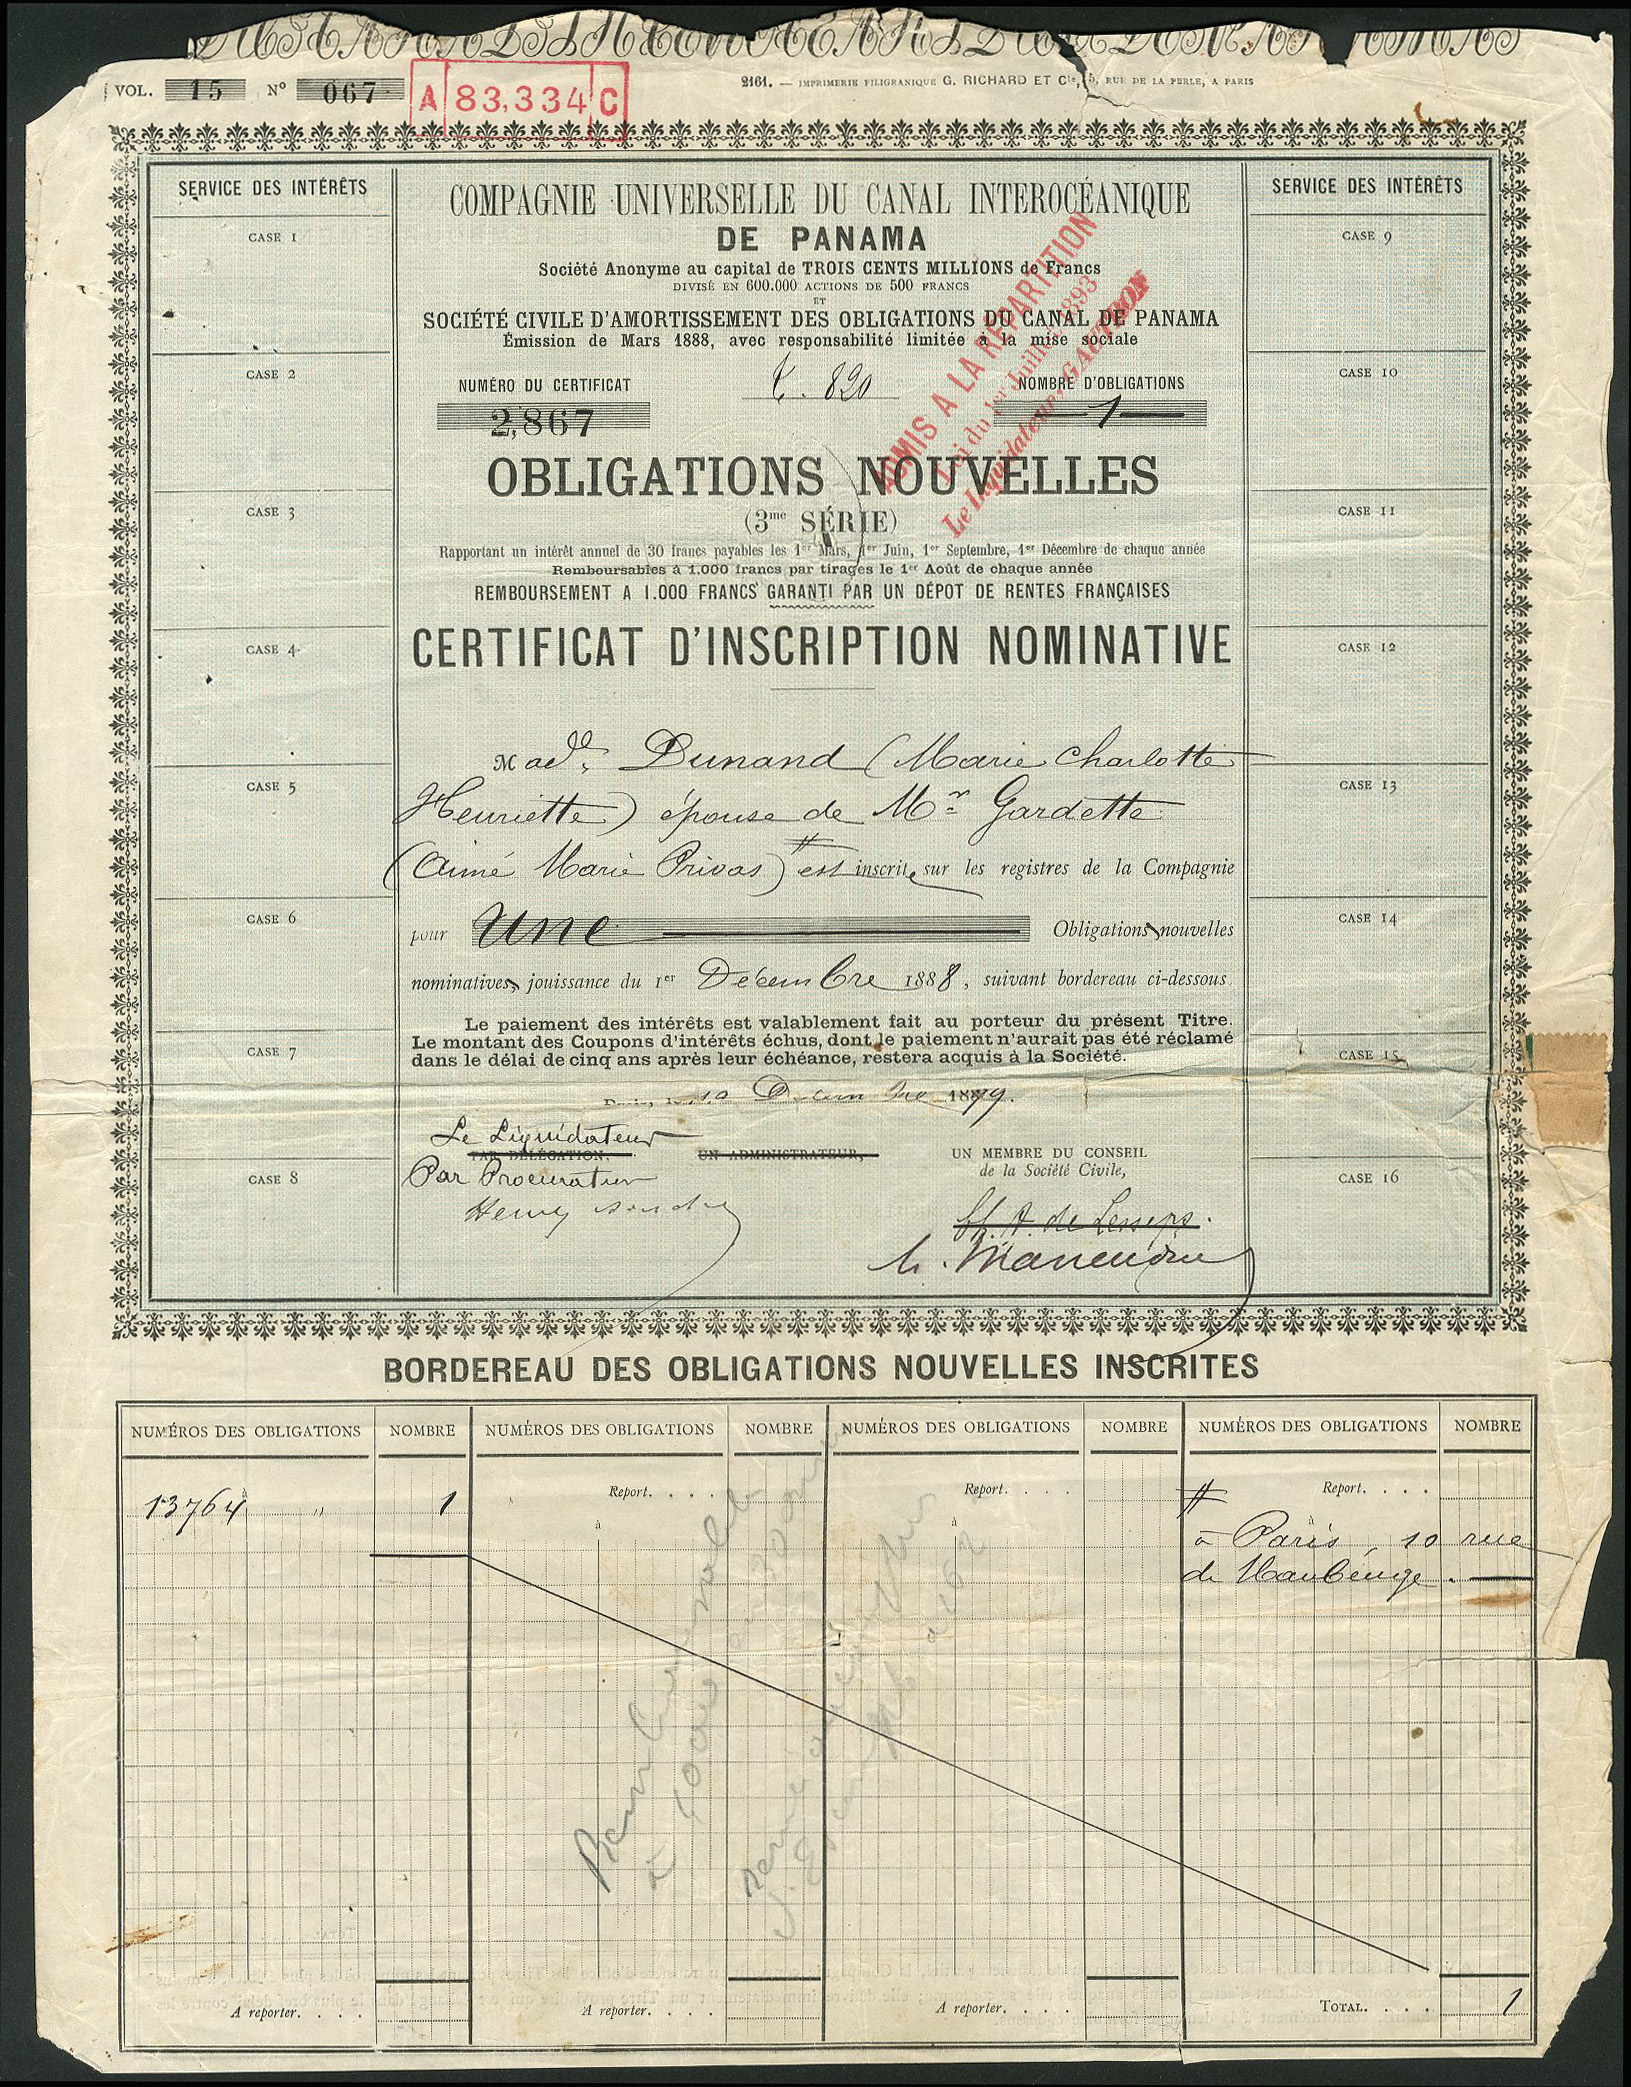 VOL. 15 Nº 067
A 83,334 C
2161. — IMPRIMERIE FILIGRANIQUE G. RICHARD ET Cie, 5, RUE DE LA PERLE, A PARIS
SERVICE DES INTÉRÊTS
CASE 1
CASE 2
CASE 3
CASE 4
CASE 5
CASE 6
CASE 7
CASE 8
COMPAGNIE UNIVERSELLE DU CANAL INTEROCÉANIQUE
DE PANAMA
Société Anonyme au capital de TROIS CENTS MILLIONS de Francs
DIVISÉ EN 600.000 ACTIONS DE 500 FRANCS
ET
SOCIÉTÉ CIVILE D'AMORTISSEMENT DES OBLIGATIONS DU CANAL DE PANAMA
Émission de Mars 1888, avec responsabilité limitée à la mise sociale
NUMÉRO DU CERTIFICAT
2,867
820
NOMBRE D'OBLIGATIONS
1
ADMIS A LA RÉPARTITION
Loi du 1er Juillet 1893
Le liquidateur, GAUTRON
OBLIGATIONS NOUVELLES
(3me SÉRIE)
Rapportant un intérêt annuel de 30 francs payables les 1er Mars, 1er Juin, 1er Septembre, 1er Décembre de chaque année
Remboursables à 1.000 francs par tirages le 1er Août de chaque année
REMBOURSEMENT A 1.000 FRANCS GARANTI PAR UN DÉPOT DE RENTES FRANÇAISES
CERTIFICAT D'INSCRIPTION NOMINATIVE
Made Dunand (Marie Charlotte
Henriette) épouse de Mr Gardette
(Aimé Marie Privas) # est inscrite sur les registres de la Compagnie
pour une Obligations nouvelles
nominatives, jouissance du 1er Décembre 1888, suivant bordereau ci-dessous
Le paiement des intérêts est valablement fait au porteur du présent Titre.
Le montant des Coupons d'intérêts échus, dont le paiement n'aurait pas été réclamé
dans le délai de cinq ans après leur échéance, restera acquis à la Société.
Paris, le 10 Décembre 1889.
Le Liquidateur
PAR DÉLÉGATION,
Par Procuration
UN ADMINISTRATEUR,
UN MEMBRE DU CONSEIL
de la Société Civile,
Ch. A. de Lesseps.
SERVICE DES INTÉRÊTS
CASE 9
CASE 10
CASE 11
CASE 12
CASE 13
CASE 14
CASE 15
CASE 16
BORDEREAU DES OBLIGATIONS NOUVELLES INSCRITES
NUMÉROS DES OBLIGATIONS NOMBRE NUMÉROS DES OBLIGATIONS NOMBRE NUMÉROS DES OBLIGATIONS NOMBRE NUMÉROS DES OBLIGATIONS NOMBRE
Report. . . . Report. . . . # Report. . . .
13764 à " 1 à à à
à Paris, 10 rue
de Maubeuge.
A reporter. . . . A reporter. . . . A reporter. . . . TOTAL. . . . 1